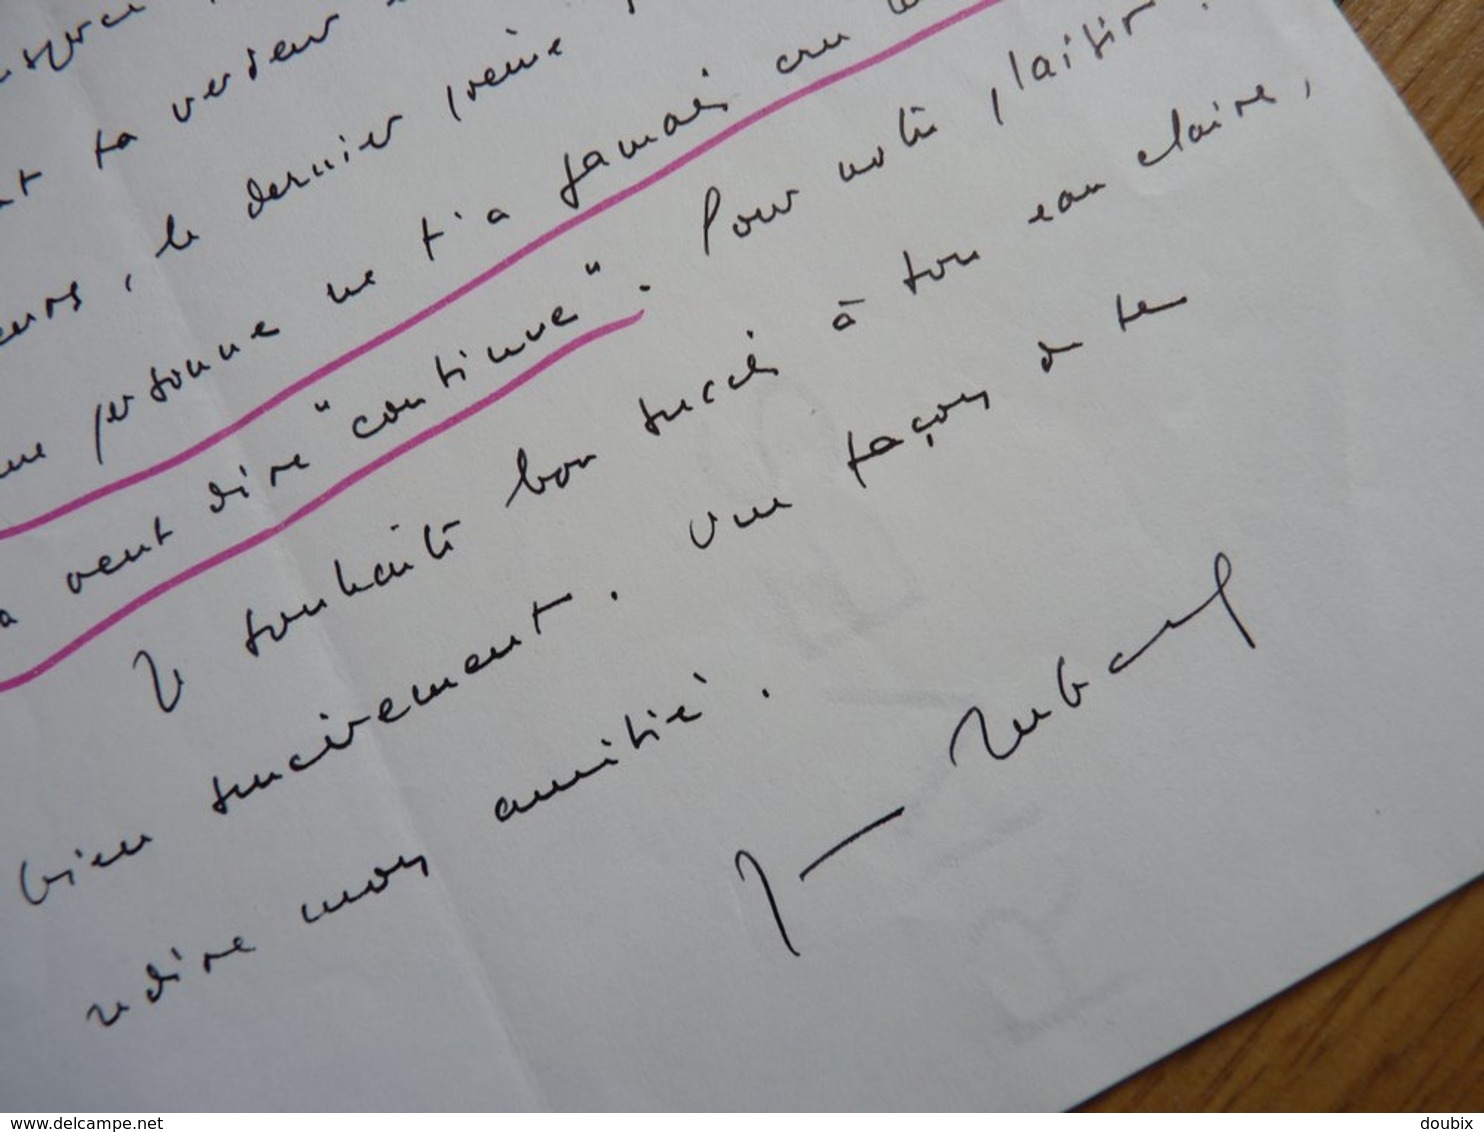 ta verdeur
, le dernier poème
personne ne t'a jamais cru
veut dire "continue". Pour notre plaisir.
Je souhaite bon succès à ton eau claire,
bien sincèrement. Une façon de te
redire mon amitié.
www.delcampe.net
doubix